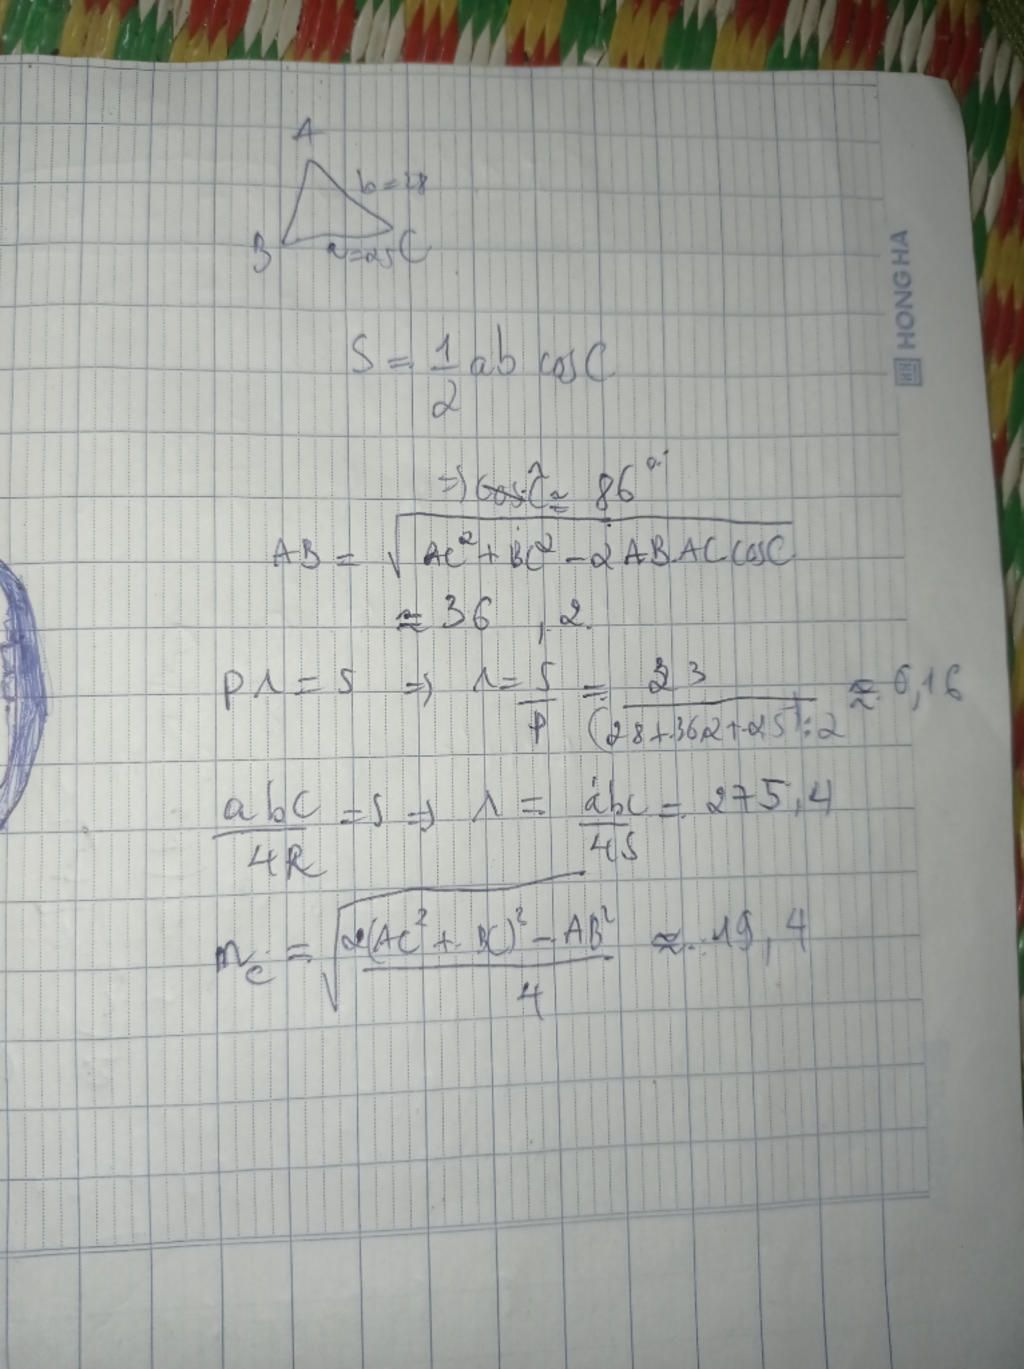 A
b = 28
B
a = 25
C
HONG HA
S = 1/2 ab cos C
=> Ĉ ≈ 86°
AB = √(AC² + BC² - 2AB.AC cos C)
≈ 36,2.
pr = S => r = S/p = 23/((28 + 36,2 + 25) : 2) ≈ 6,16
abC/4R = S => r = abc/4S = 275,4
m_c = √((2(AC² + BC)² - AB²)/4) ≈ 19,4